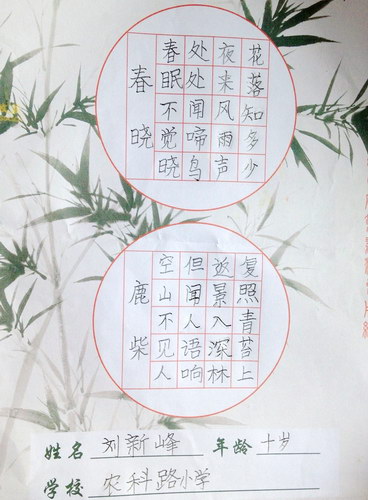 春晓
春眠不觉晓
处处闻啼鸟
夜来风雨声
花落知多少
鹿柴
空山不见人
但闻人语响
返景入深林
复照青苔上
姓名 刘新峰 年龄 十岁
学校 农科路小学